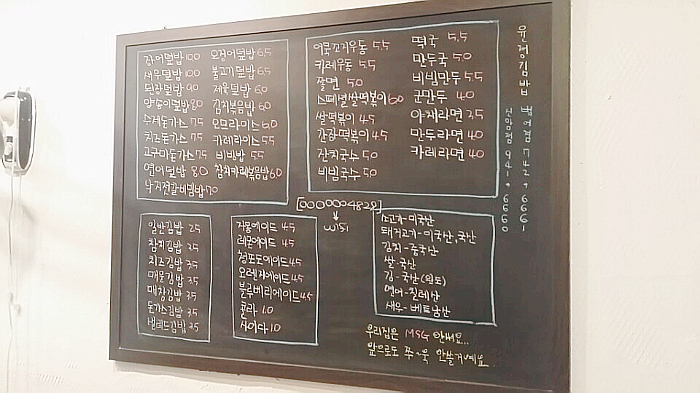 장어덮밥 10.0 오징어덮밥 6.5
새우덮밥 10.0 불고기덮밥 6.5
된장덮밥 9.0 제육덮밥 6.0
양송이덮밥 8.0 김치볶음밥 6.0
수제돈가스 7.5 오므라이스 6.0
치즈돈가스 7.5 카레라이스 5.5
고구마돈가스 7.5 비빔밥 5.5
연어덮밥 8.0 참치카레볶음밥 6.0
낙지젓갈비빔밥 7.0
어묵꼬치우동 5.5
카레우동 5.5
쫄면 5.0
스페셜쌀떡볶이 6.0
쌀떡볶이 4.5
간장떡볶이 4.5
잔치국수 5.0
비빔국수 5.0
떡국 5.5
만두국 5.0
비빔만두 5.5
군만두 4.0
야채라면 3.5
만두라면 4.0
카레라면 4.0
윤정이김밥
742*6661
941*6660
[0000004828]
wifi
일반김밥 2.5
참치김밥 3.5
치즈김밥 3.5
매운김밥 3.5
매참김밥 3.5
돈까스김밥 3.5
샐러드김밥 3.5
자몽에이드 4.5
레몬에이드 4.5
청포도에이드 4.5
오렌지에이드 4.5
블루베리에이드 4.5
콜라 1.0
사이다 1.0
소고기-미국산
돼지고기-미국산, 국산
김치-중국산
쌀-국산
김-국산(완도)
연어-칠레산
새우-베트남산
우리집은 MSG 안써요...
앞으로도 쭈~욱 안쓸거예요...